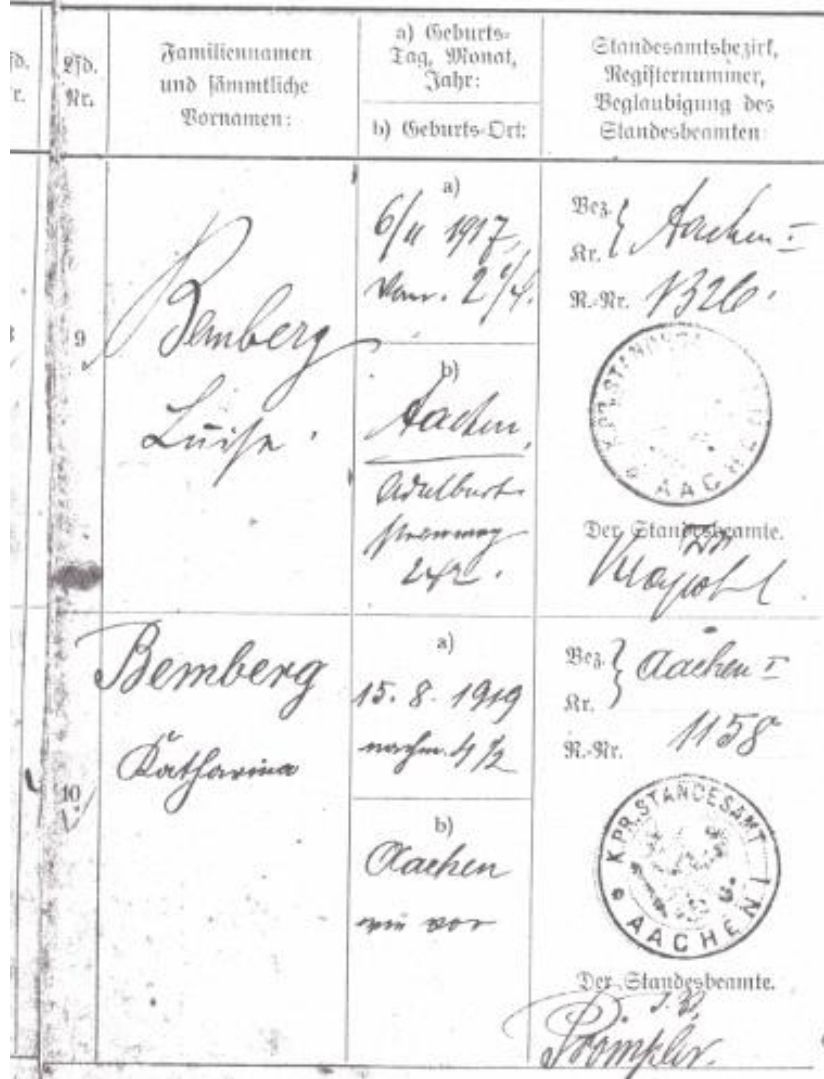 Lfd.
Nr.
Familiennamen
und sämmtliche
Vornamen:
a) Geburts-
Tag, Monat,
Jahr:
b) Geburts-Ort:
Standesamtsbezirk,
Registernummer,
Beglaubigung des
Standesbeamten:
9
Bemberg
Luise.
a)
6/11 1917,
b)
Aachen,
Adalbert-
steinweg
242.
Bez.
Kr.
Aachen I
R.-Nr. 1326.
K.PR.STANDESAMT
AACHEN
Der Standesbeamte.
10
Bemberg
Katharina
a)
15. 8. 1919
nachm. 4 1/2
b)
Aachen
wie vor
Bez.
Kr.
Aachen I
R.-Nr. 1158
K.PR.STANDESAMT
AACHEN I
Der Standesbeamte.
J.V.